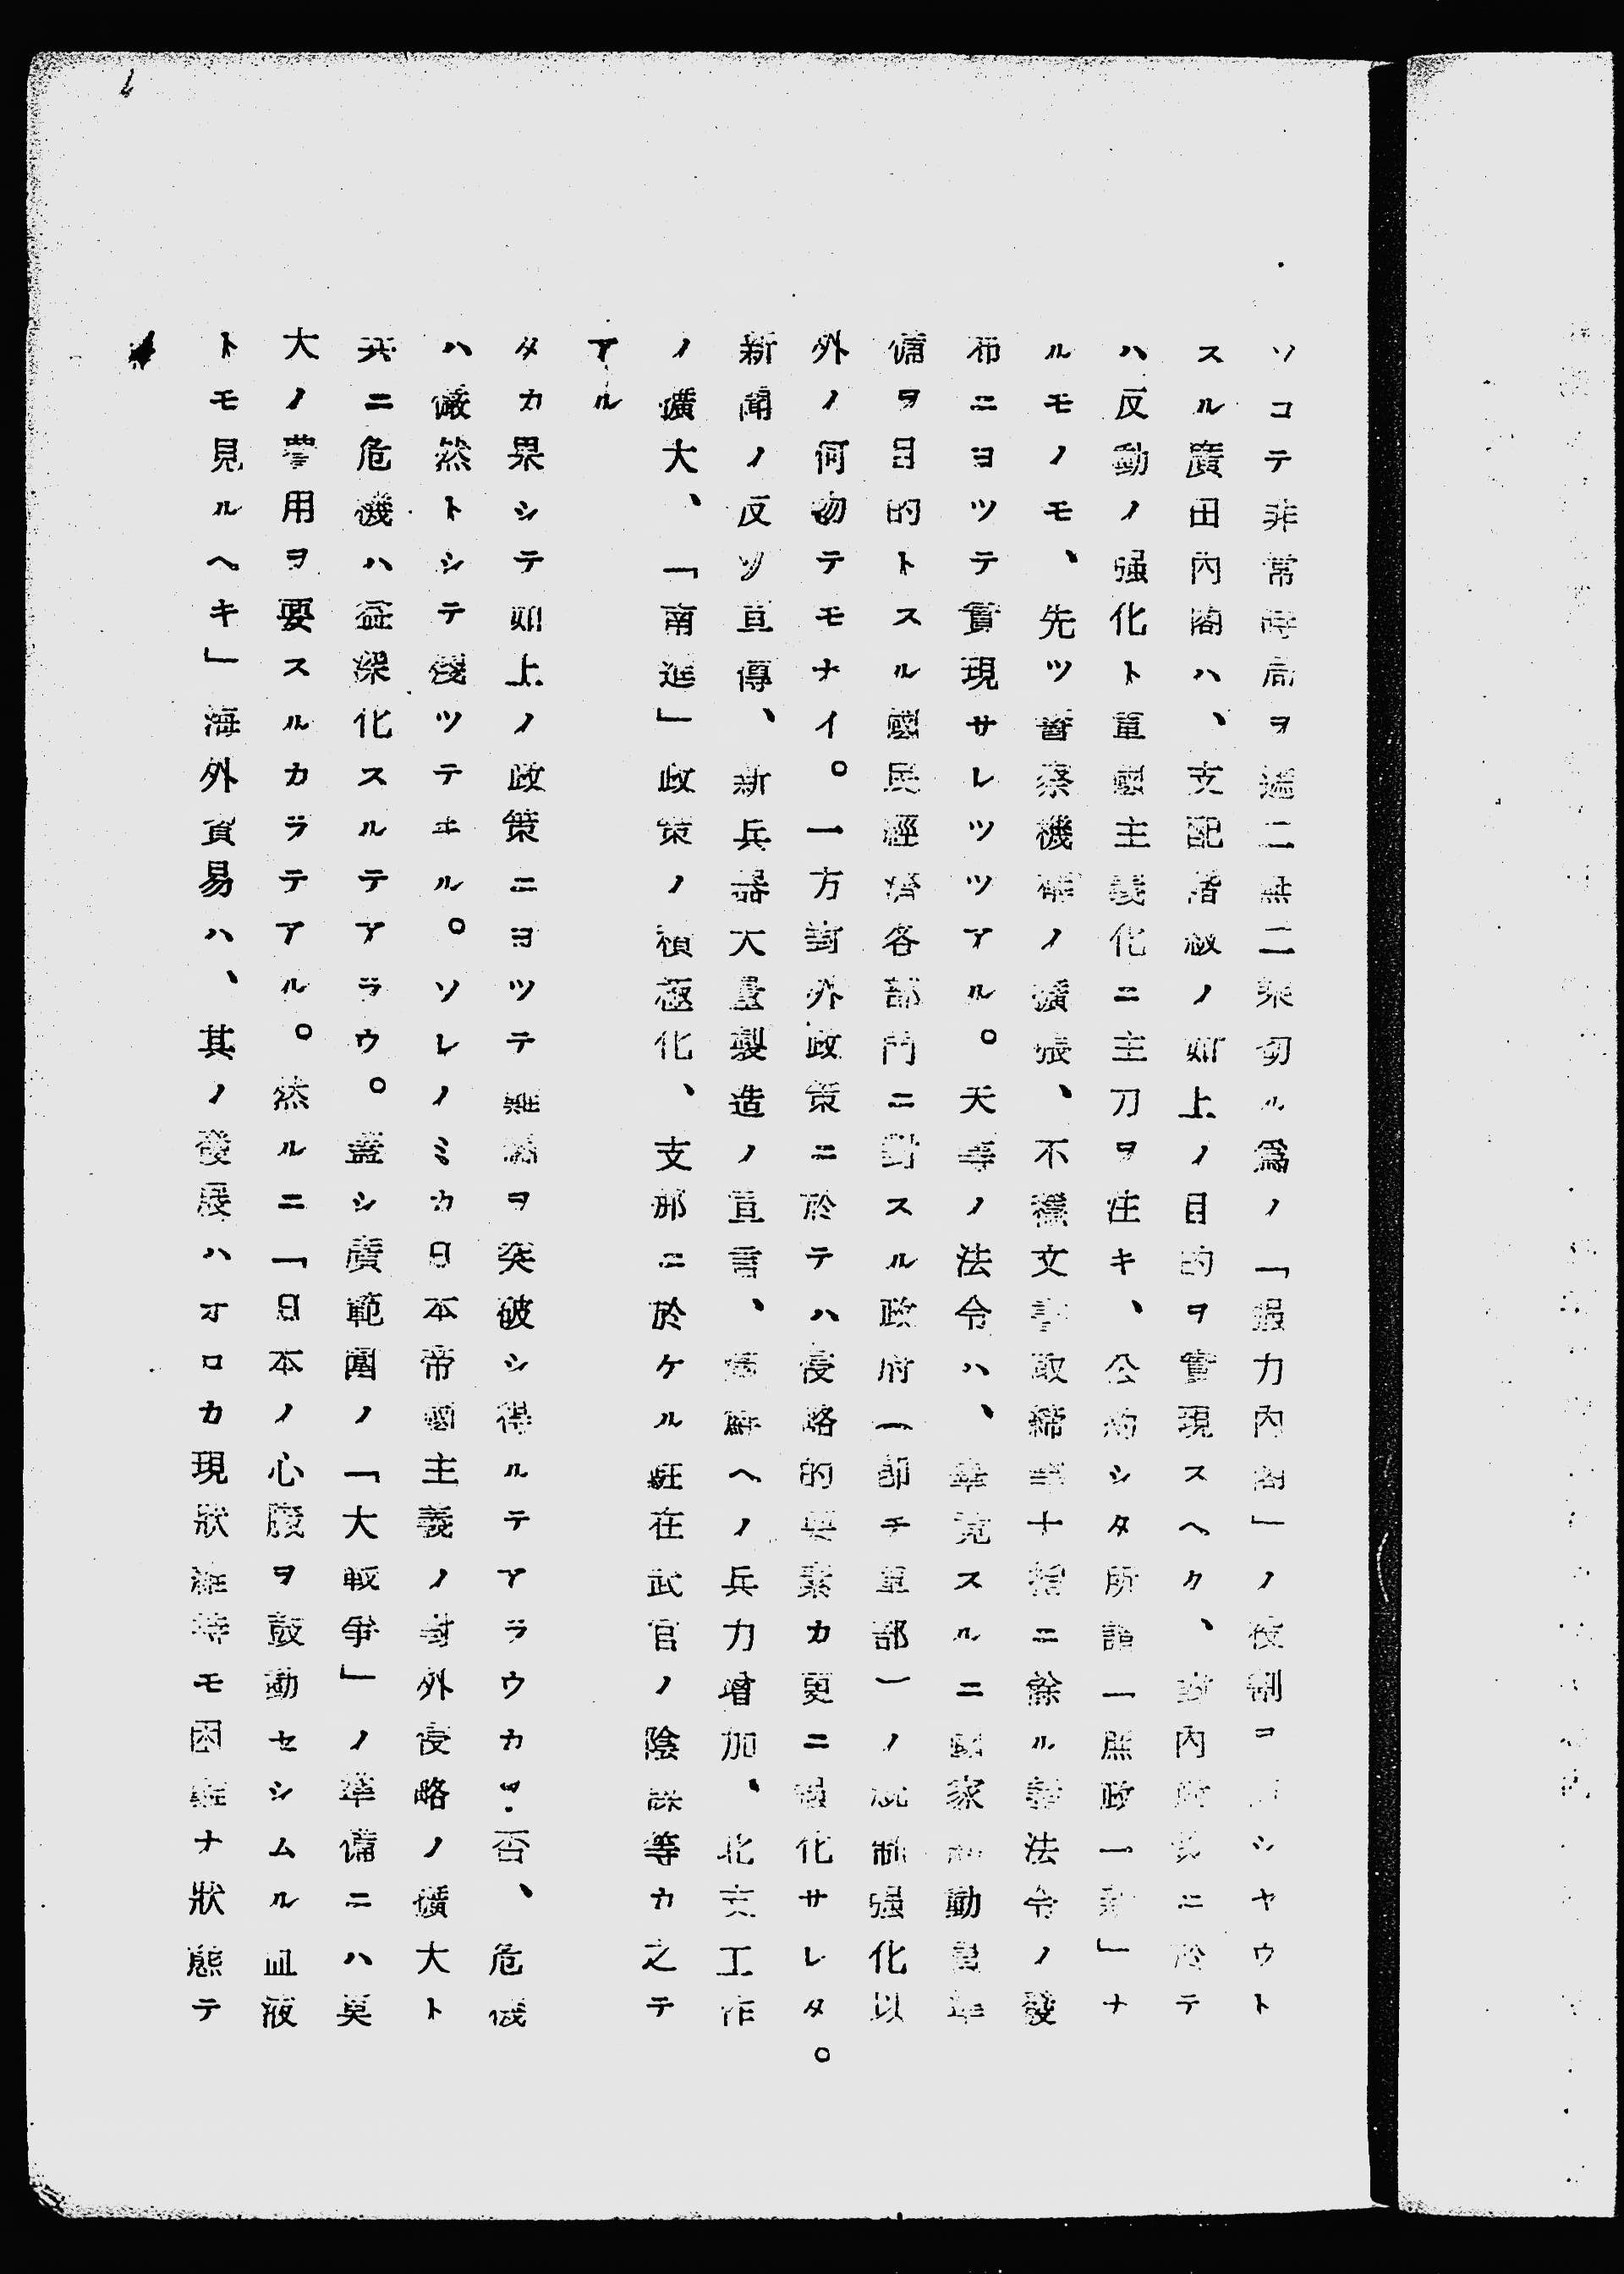 ソコテ非常時局ヲ遮二無二乘切ル爲ノ「强力內閣」ノ役割コ シヤウト
スル廣田內閣ハ、支配階級ノ如上ノ目的ヲ實現スヘク、 內政 ニ於テ
ハ反動ノ强化ト軍國主義化ニ主力ヲ注キ、公約シタ所謂「庶政一新」ナ
ルモノモ、先ツ警察機構ノ擴張、不穩文書取締等十指ニ餘ル 法令ノ發
布ニヨツテ實現サレツツアル。夫等ノ法令ハ、畢竟スルニ國家 動員準
備ヲ目的トスル國民經濟各部門ニ對スル政府(卽チ軍部)ノ統制强化以
外ノ何物テモナイ。一方對外政策ニ於テハ侵略的要素カ更ニ强化サレタ。
新聞ノ反ソ宣傳、新兵器大量製造ノ宣言、滿 ヘノ兵力增加、北支工作
ノ擴大、「南進」政策ノ積極化、支那ニ於ケル駐在武官ノ陰謀等カ之テ
アル
タカ果シテ如上ノ政策ニヨツテ難局ヲ突破シ得ルテアラウカ 否、危機
ハ儼然トシテ殘ツテヰル。ソレノミカ日本帝國主義ノ對外侵略ノ擴大ト
共ニ危機ハ益深化スルテアラウ。蓋シ廣範圍ノ「大戰爭」ノ準備ニハ莫
大ノ費用ヲ要スルカラテアル。然ルニ「日本ノ心臟ヲ鼓動セシムル血液
トモ見ルヘキ」海外貿易ハ、其ノ發展ハオロカ現狀維持モ困難ナ狀態テ